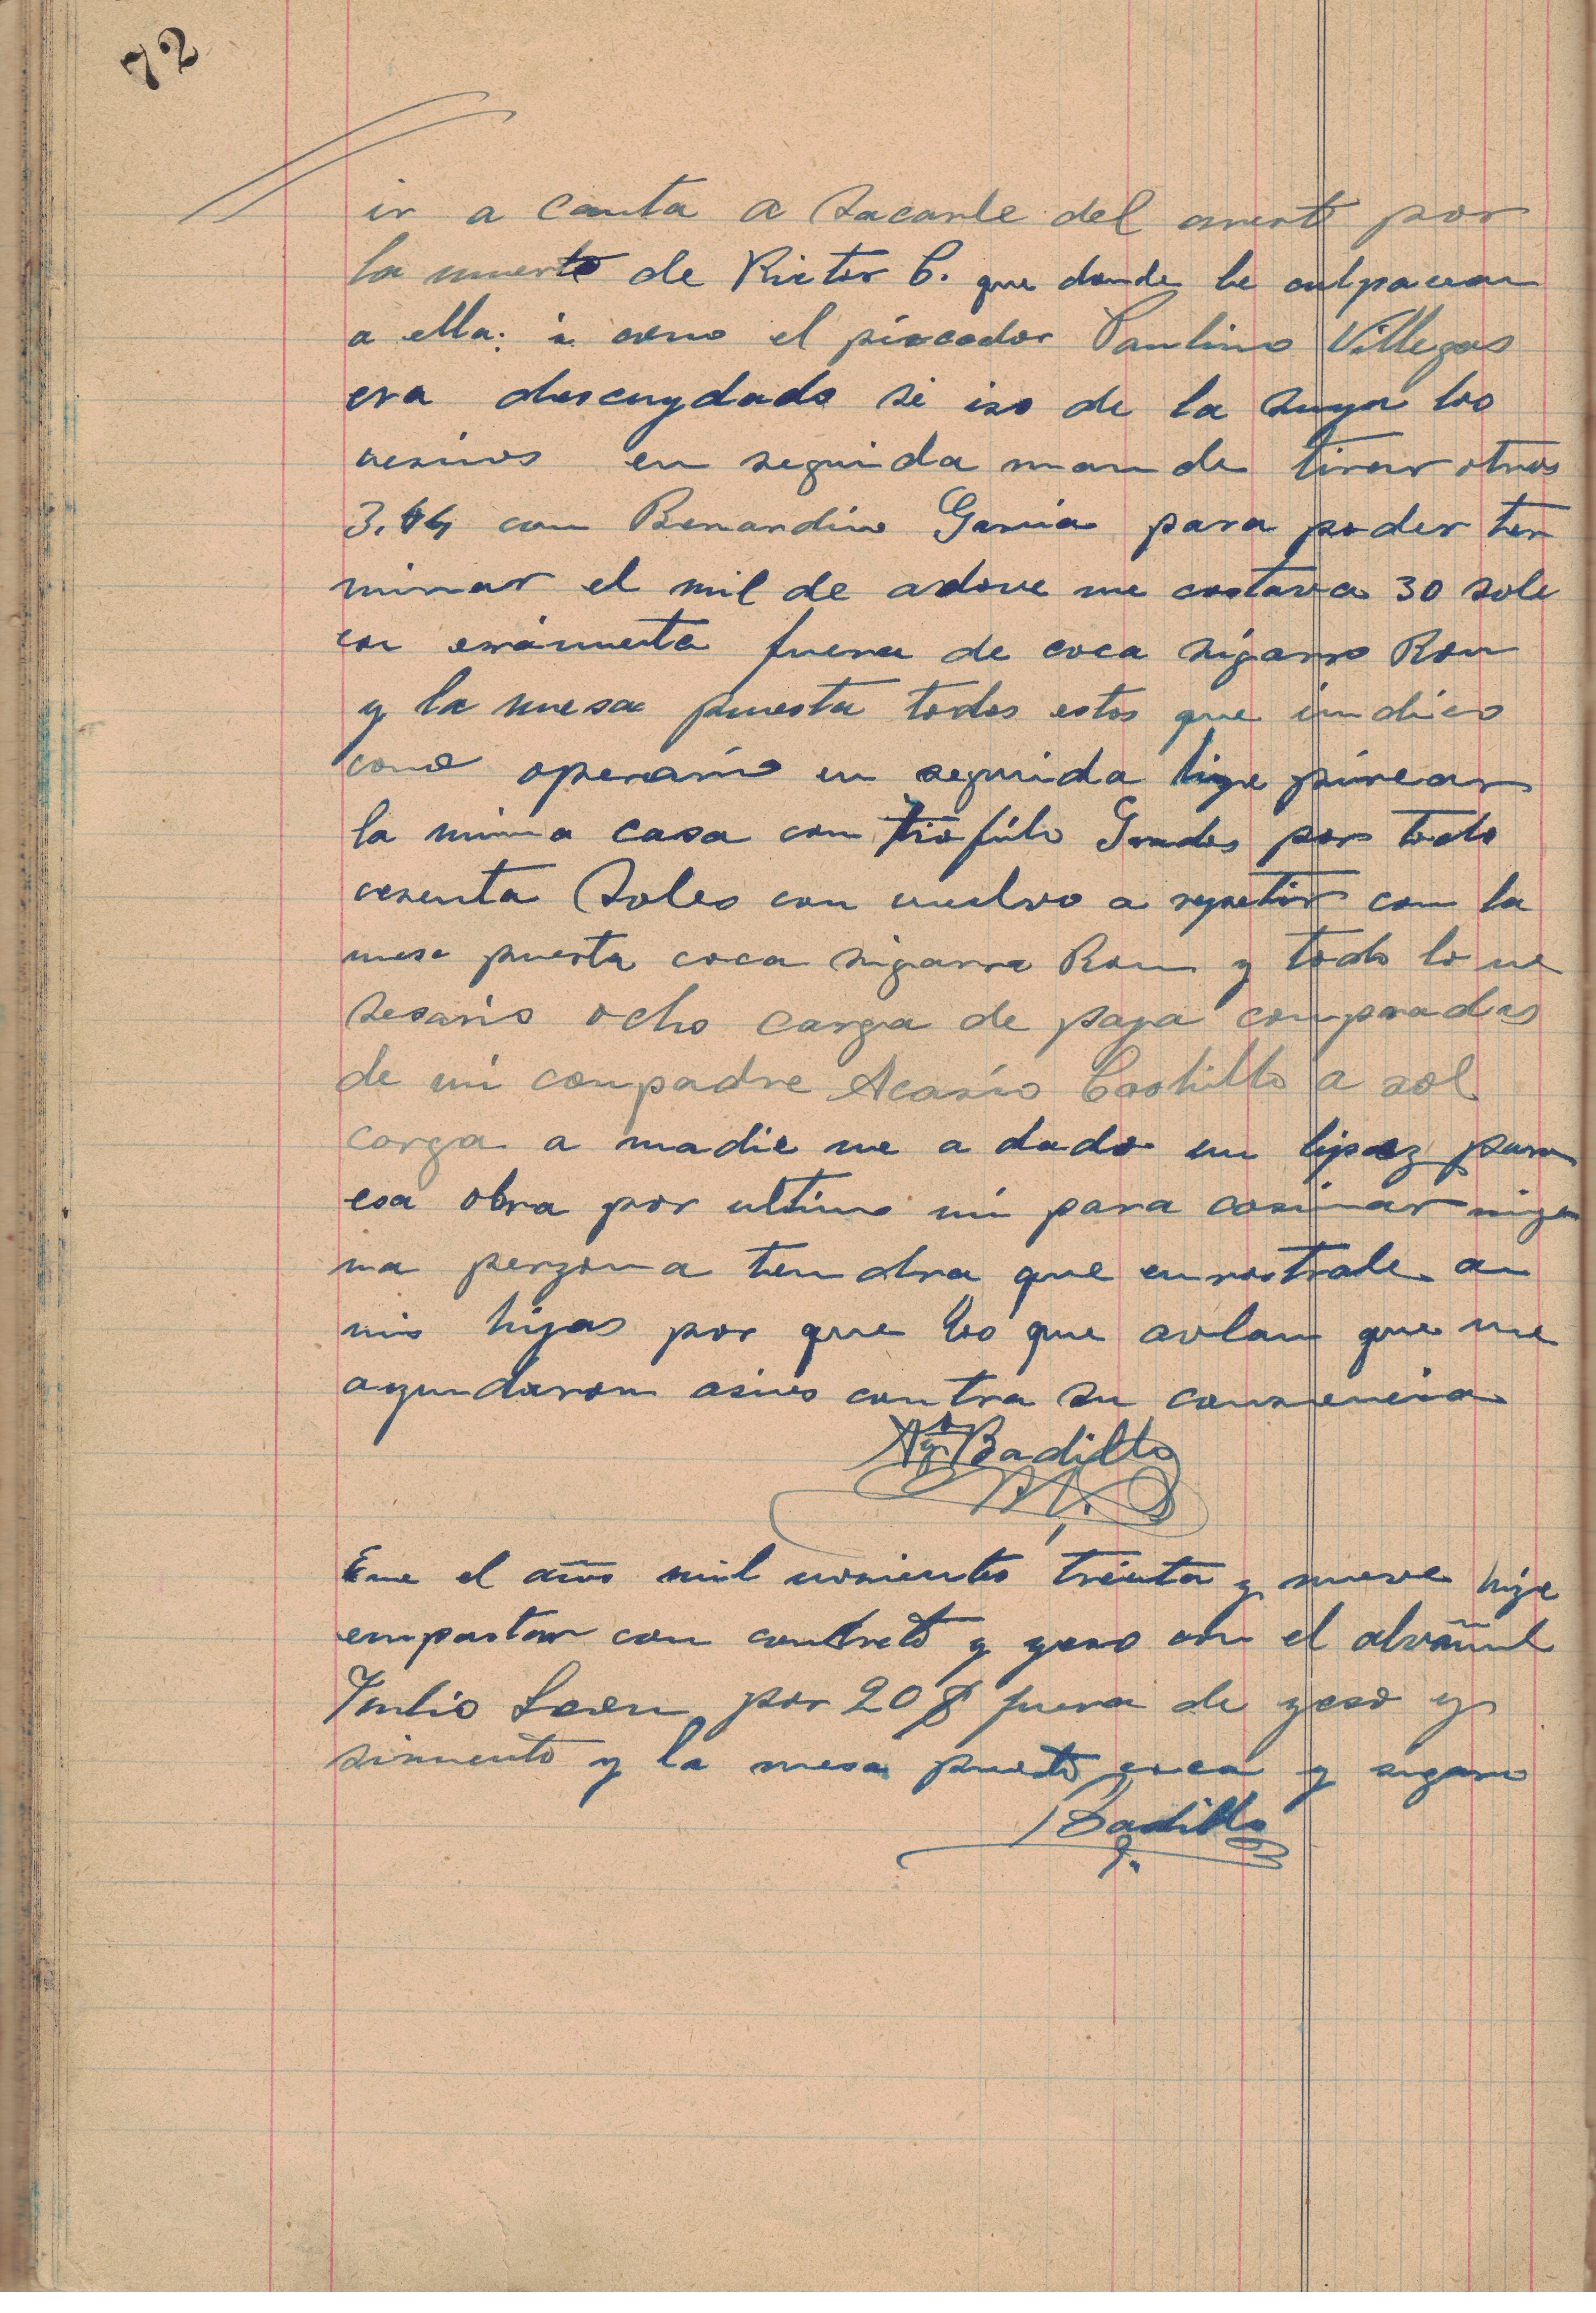 72
ir a Canta a sacarle del arresto por
la muerte de Victor C. que donde le culpavan
a ella: i como el pircador Paulino Villegas
era descuydado se iso de la suya los
vesinos en seguida mande tirar otros
3. con Benardino Garcia para poder ter
minar el mil de adove me costava 30 sole
con erramienta fuera de coca sigarro Ron
y la mesa puesta todos estos que indico
como operario en seguida hize pircar
la misma casa con Tiofilo Grados por todo
cesenta Soles con vuelvo a repetir con la
mesa puesta coca sigarro Ron y todo lo ne
sesario ocho carga de paja compradas
de mi compadre Acasio Castillo a sol
carga a nadie me a dado un lipez para
esa obra por ultimo ni para cosinar nigu
na perzona tendra que enrostrale a
mis hijas por que los que avlan que me
ayudaron asines contra su consiencia
Ag. Badillo
Ene el años mil nosientos treinta y nueve hize
empastar con concreto y yeso con el alvañil
Julio Leon por 20 $ fuera de yeso y
simento y la mesa puesta coca y sigarro
Badillo